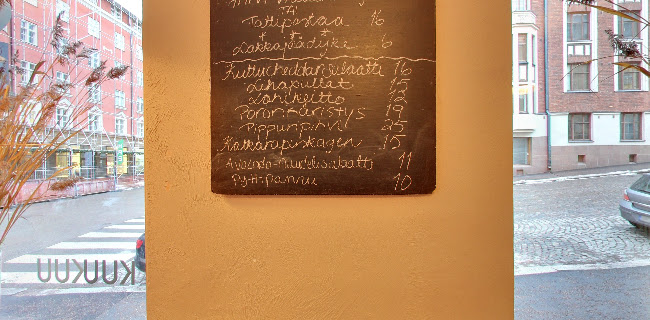 Tattipastaa 16
Lakkajäädyke 6
Kuttucheddarsalaatti 16
Lihapullat 15
Lohikeitto 12
Poronkäristys 19
Pippuripihvi 25
Katkarapuskagen 15
Avocado-nuudelisalaatti 11
Pytti-pannu 10
KUUKUU